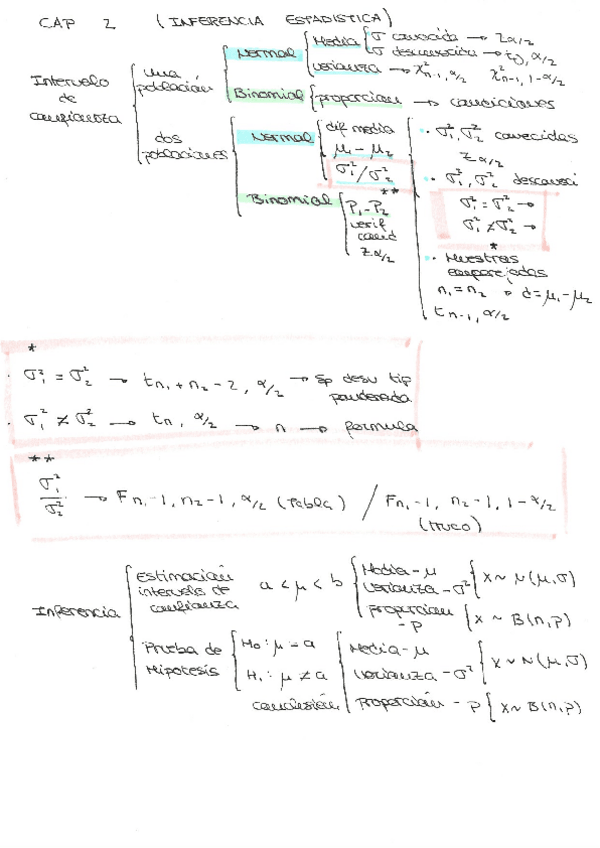 CAP 2 (INFERENCIA ESTADISTICA)
Intervalo de confianza
una población
Normal
Media
σ conocida → Zα/2
σ desconocida → t, α/2
varianza → χ²n-1, α/2 χ²n-1, 1-α/2
Binomial
proporcion → condiciones
dos poblaciones
Normal
dif media
μ₁ - μ₂
σ₁²/σ₂²
**
· σ₁², σ₂² conocidas
Zα/2
· σ₁², σ₂² desconoci
σ₁² = σ₂² →
σ₁² ≠ σ₂² →
*
· Muestras emparejadas
n₁ = n₂ → d = μ₁ - μ₂
t n-1, α/2
Binomial
P₁ - P₂
verif
cond
Zα/2
*
· σ₁² = σ₂² → t n₁ + n₂ - 2, α/2 → Sp desv tip
ponderada
· σ₁² ≠ σ₂² → t n, α/2 → n → formula
**
σ₁²/σ₂² → F n₁-1, n₂-1, α/2 (Tabla) / F n₁-1, n₂-1, 1-α/2
(truco)
Inferencia
Estimación
intervalo de
confianza
a < μ < b
Media - μ
varianza - σ²
X ~ N(μ, σ)
proporcion
- p
X ~ B(n, p)
Prueba de
Hipotesis
H₀: μ = a
H₁: μ ≠ a
conclusión
Media - μ
varianza - σ²
X ~ N(μ, σ)
proporción - p
X ~ B(n, p)